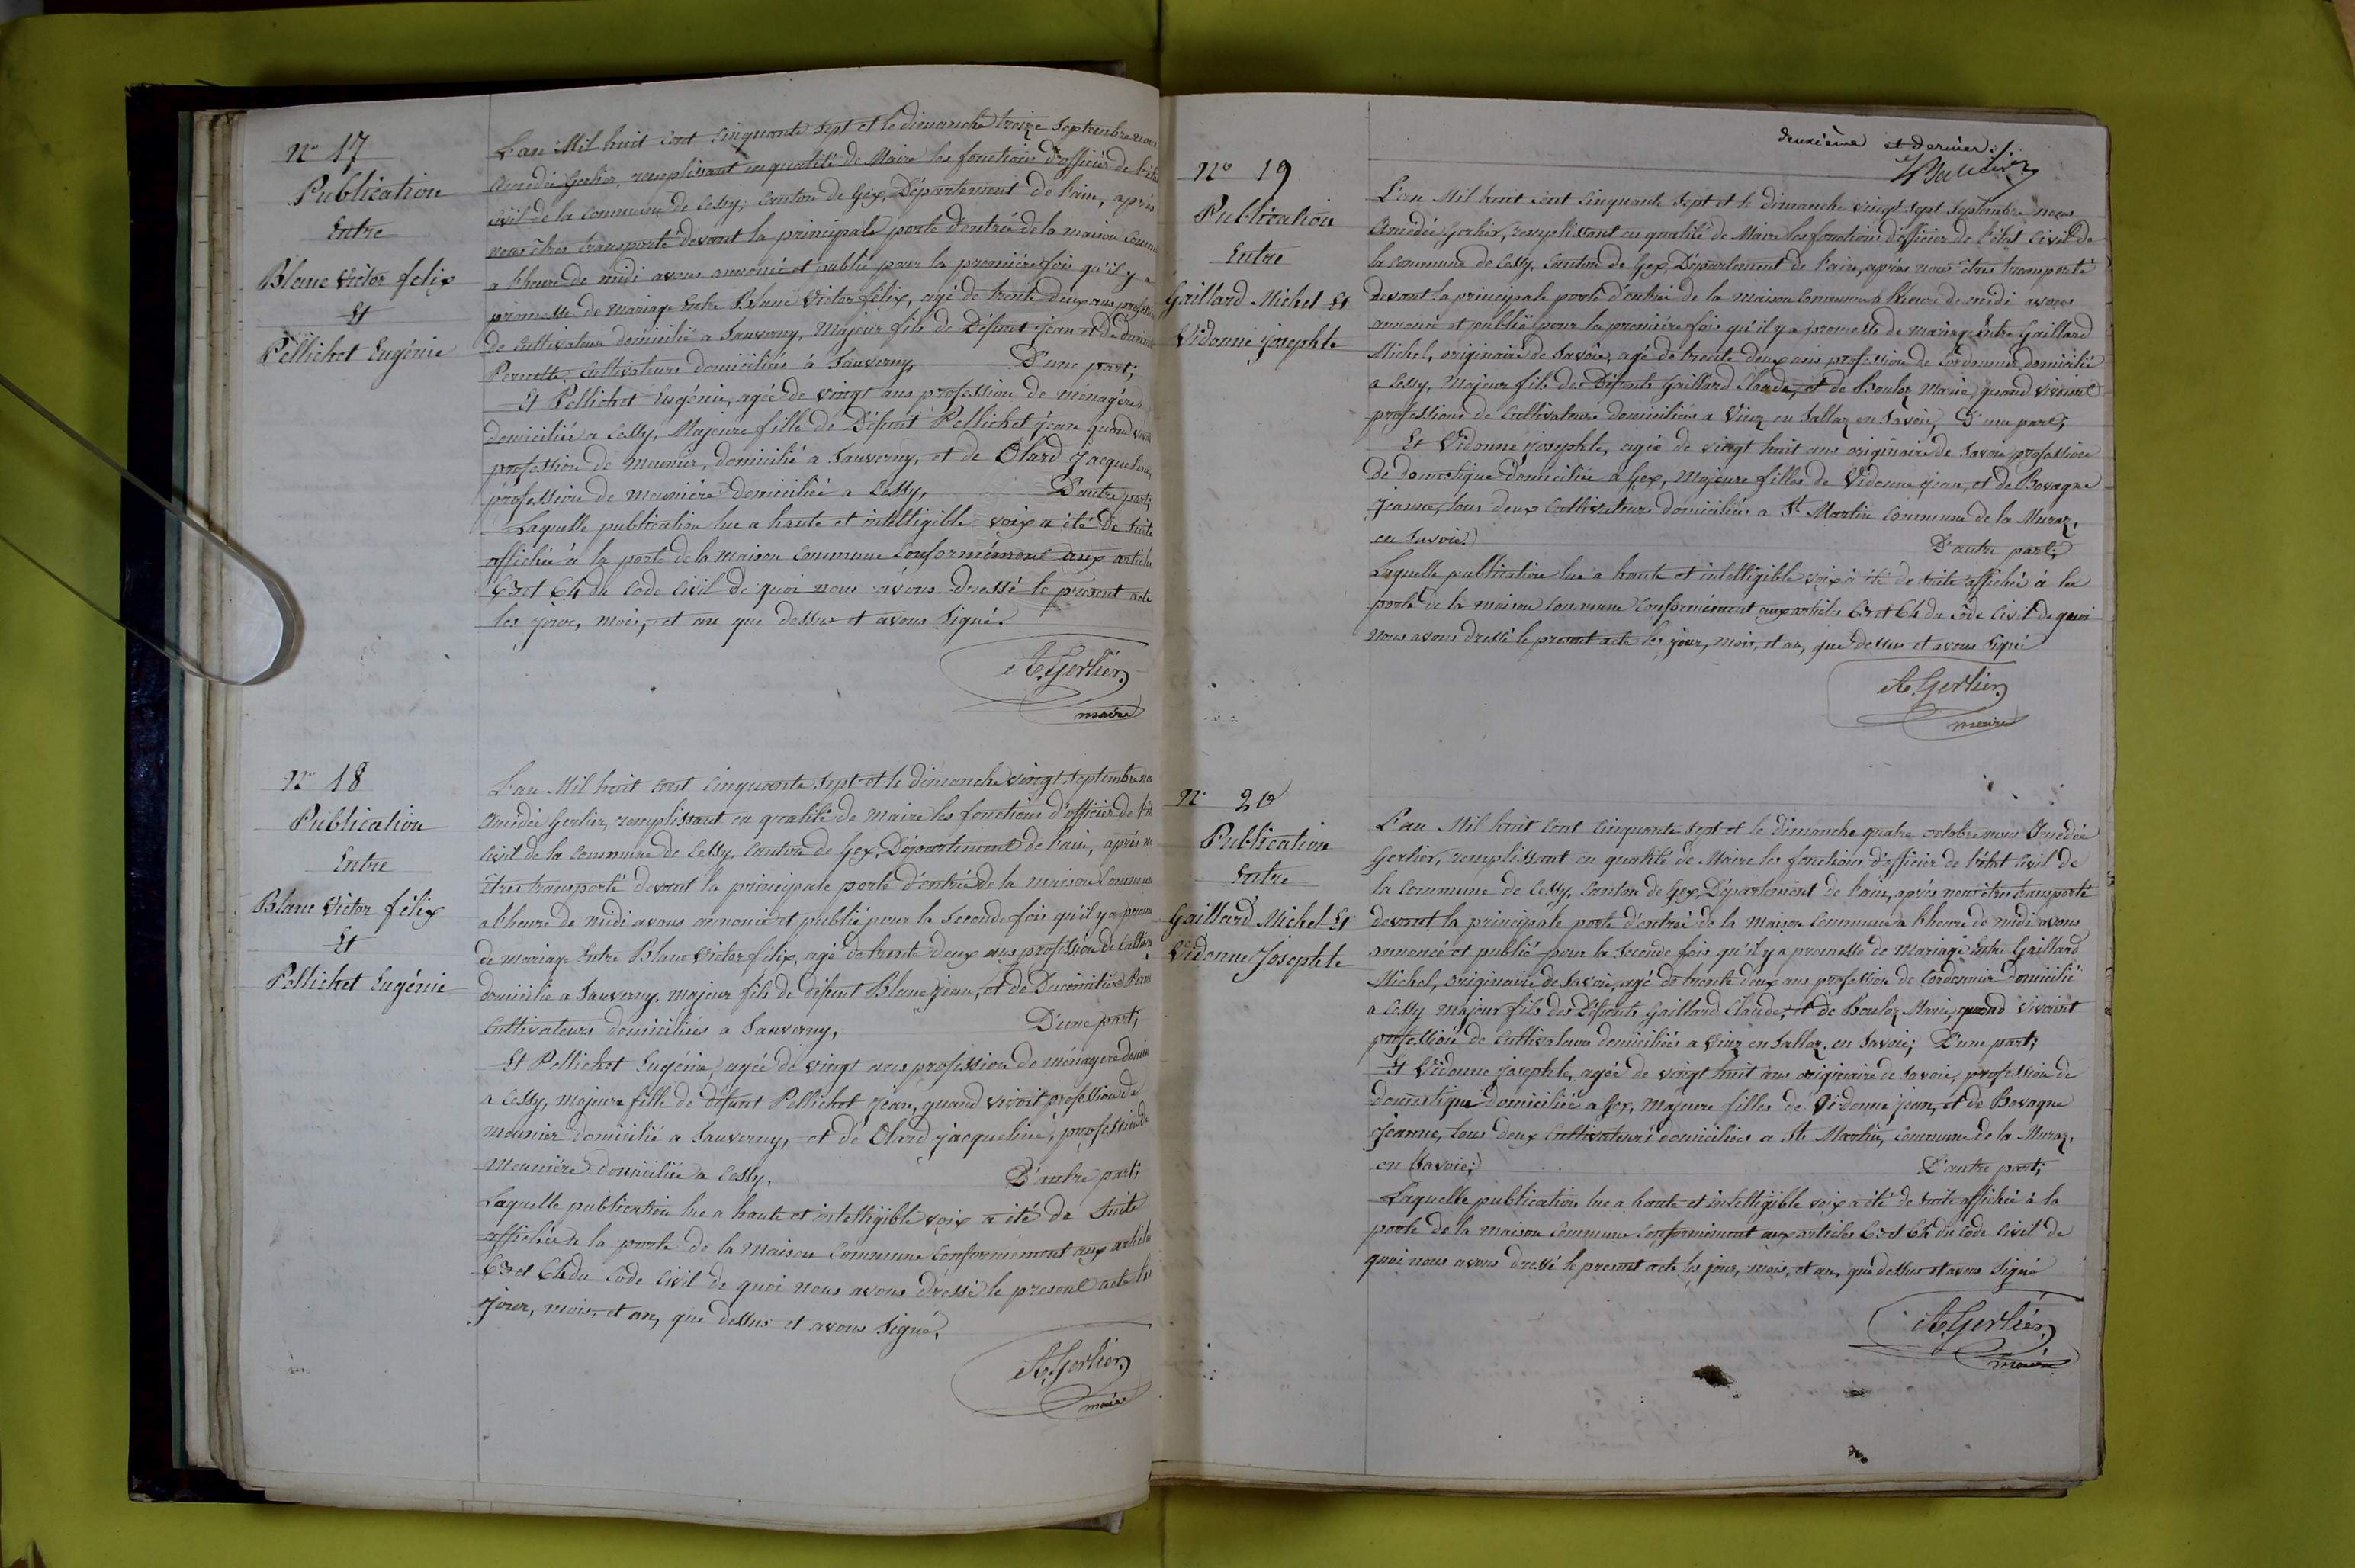 Nº 17
Publication
Entre
Blanc Victor félix
Et
Pellichet Eugénie
L'an Mil huit cent cinquante sept et le dimanche treize Septembre nous
Amédée Gerlier, remplissant en qualité de Maire les fonctions d'officier de l'état
civil de la commune de Cessy, Canton de Gex, Département de l'ain, après
nous être transporté devant la principale porte d'entrée de la maison commune
a l'heure de midi avons annoncé et publié pour la première fois qu'il y a
promesse de Mariage Entre Blanc Victor félix, agé de trente deux ans profession
de Cultivateur domicilié a Sauverny, Majeur fils de Défunt jean et de
Pernette, Cultivateurs domiciliés à Sauverny, D'une part;
Et Pellichet Eugénie, agée de vingt ans profession de ménagère
domiciliée a Cessy, Majeure fille de Défunt Pellichet jean quand vivait
profession de Meunier, domicilié a Sauverny, et de Olard Jacqueline,
profession de meunière domiciliée a Cessy, D'autre part;
Laquelle publication lue a haute et intelligible voix a été de suite
affichée à la porte de la Maison Commune Conformément aux articles
63 et 64 du Code Civil de quoi nous avons dressé le présent acte
les jour, mois, et an que dessus et avons Signé.
A. Gerlier
maire
Nº 18
Publication
Entre
Blanc Victor félix
Et
Pellichet Eugénie
L'an Mil huit cent cinquante sept et le dimanche vingt Septembre nous
Amédée Gerlier, remplissant en qualité de Maire les fonctions d'officier de l'état
Civil de la Commune de Cessy, Canton de Gex, Département de l'ain, après
être transporté devant la principale porte d'entrée de la maison Commune
a l'heure de midi avons annoncé et publié pour la Seconde fois qu'il y a promesse
de mariage Entre Blanc Victor félix, agé de trente deux ans profession de Cultiva
domicilié a Sauverny, majeur fils de défunt Blanc jean, et de
Cultivateurs domiciliés a Sauverny, D'une part;
Et Pellichet Eugénie, agée de vingt ans profession de ménagère
a Cessy, majeure fille de défunt Pellichet jean, quand vivait profession de
meunier domicilié a Sauverny, et de Olard jacqueline, profession de
Meunière domiciliée a Cessy, D'autre part;
Laquelle publication lue a haute et intelligible voix a été de Suite
affichée a la porte de la Maison Commune Conformément aux articles
63 et 64 du Code Civil de quoi nous avons dressé le présent acte les
Jour, mois, et an, que dessus et avons Signé,
A. Gerlier
maire
deuxième et dernier
Nº 19
Publication
Entre
Gaillard Michel Et
Vidonne josephte
L'an Mil huit cent cinquante sept et le dimanche vingt sept Septembre nous
Amédée Gerlier, remplissant en qualité de Maire les fonctions d'officier de l'état Civil de
la Commune de Cessy, Canton de Gex, Département de l'ain, après nous être transporté
devant la principale porte d'entrée de la Maison Commune a l'heure de midi avons
annoncé et publié pour la première fois qu'il y a promesse de mariage Entre Gaillard
Michel, originaire de Savoie, agé de trente deux ans profession de Cordonnier domicilié
a Cessy, Majeur fils des Défunts Gaillard Claude, et de Bouloz Marie, quand vivaient
professions de Cultivateurs domiciliés a Viuz en Sallaz en Savoie, D'une part;
Et Vidonne josephte, agée de vingt huit ans originaire de Savoie profession
de domestique domiciliée a Gex, Majeure filles de Vidonne jean, et de Bovagne
Jeanne, tous deux Cultivateurs domiciliés a St Martin Commune de la Muraz,
en Savoie. D'autre part;
Laquelle publication lue a haute et intelligible voix a été de suite affichée à la
porte de la maison Commune Conformément aux articles 63 et 64 du Code Civil de quoi
nous avons dressé le présent acte les jour, mois, et an, que dessus et avons Signé
A. Gerlier
maire
Nº 20
Publication
Entre
Gaillard Michel Et
Vidonne Josephte
L'an Mil huit cent cinquante sept et le dimanche quatre octobre nous Amédée
Gerlier, remplissant en qualité de Maire les fonctions d'officier de l'état civil de
la Commune de Cessy, Canton de Gex, Département de l'ain, après nous être transporté
devant la principale porte d'entrée de la Maison Commune a l'heure de midi avons
annoncé et publié pour la seconde fois qu'il y a promesse de Mariage Entre Gaillard
Michel, originaire de Savoie, agé de trente deux ans profession de Cordonnier domicilié
a Cessy majeur fils des Défunts Gaillard Claude, et de Bouloz Marie, quand vivaient
profession de Cultivateurs domiciliés a Viuz en Sallaz, en Savoie; D'une part;
Et Vidonne josephte, agée de vingt huit ans originaire de Savoie, profession de
domestique domiciliée a Gex, Majeure filles de Vidonne jean, et de Bovagne
Jeanne, tous deux Cultivateurs domiciliés a St Martin, Commune de la Muraz,
en Savoie; D'autre part;
Laquelle publication lue a haute et intelligible voix a été de suite affichée à la
porte de la maison Commune Conformément aux articles 63 et 64 du Code Civil de
quoi nous avons dressé le présent acte les jour, mois, et an, que dessus et avons Signé
A. Gerlier
maire